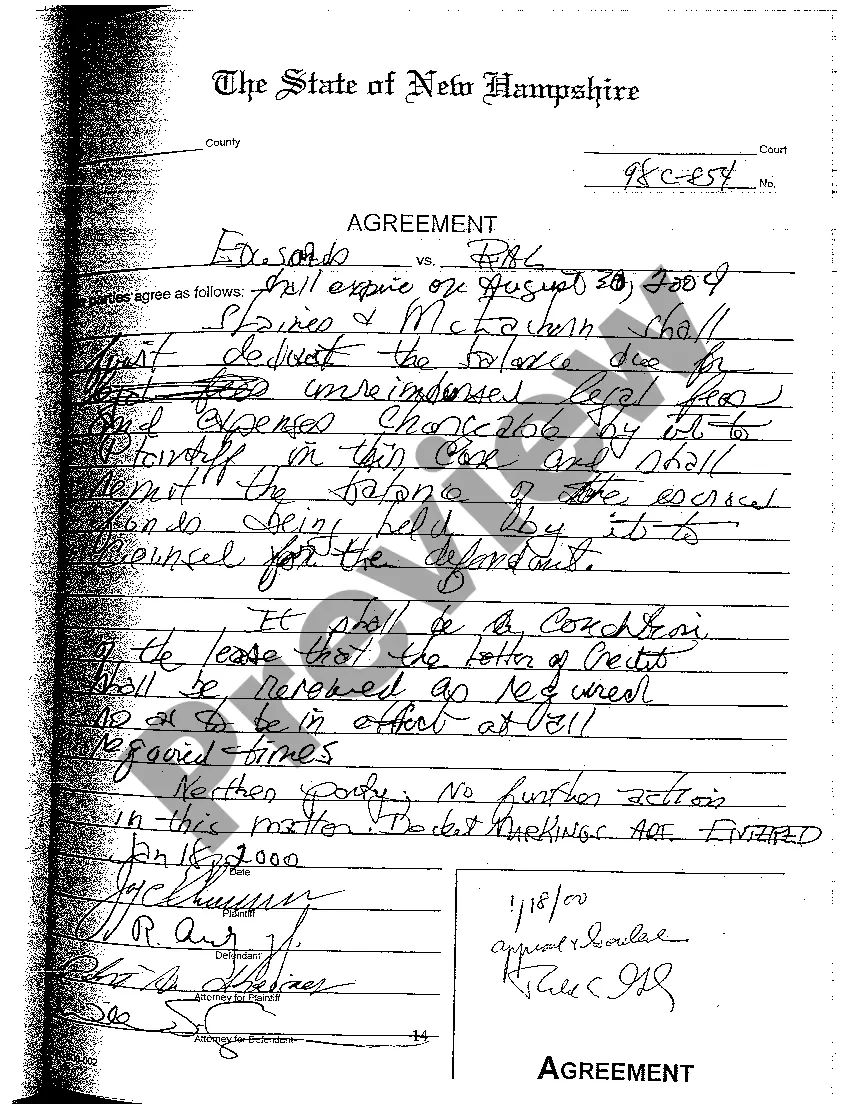 The State of New Hampshire
County
Court
98 C-854 No.
AGREEMENT
Edwards vs. RAC
parties agree as follows: shall expire on August 30, 2004
Staines & McEachern shall
first deduct the balance due for
unreimbursed legal fees
and expenses chargeable by it to
Plaintiff in this case and shall
remit the balance of the escrowed
funds being held by it to
Counsel for the defendant.
It shall be a condition
of the lease that the Letter of Credit
shall be renewed as required
so as to be in effect at all
required times
Neither party. No further action
in this matter. Docket MARKINGS ARE ENTERED
Jan 18, 2000
Date
Plaintiff
R.
Defendant
Attorney for Plaintiff
Attorney for Defendant
14
1/18/00
AGREEMENT
Preview